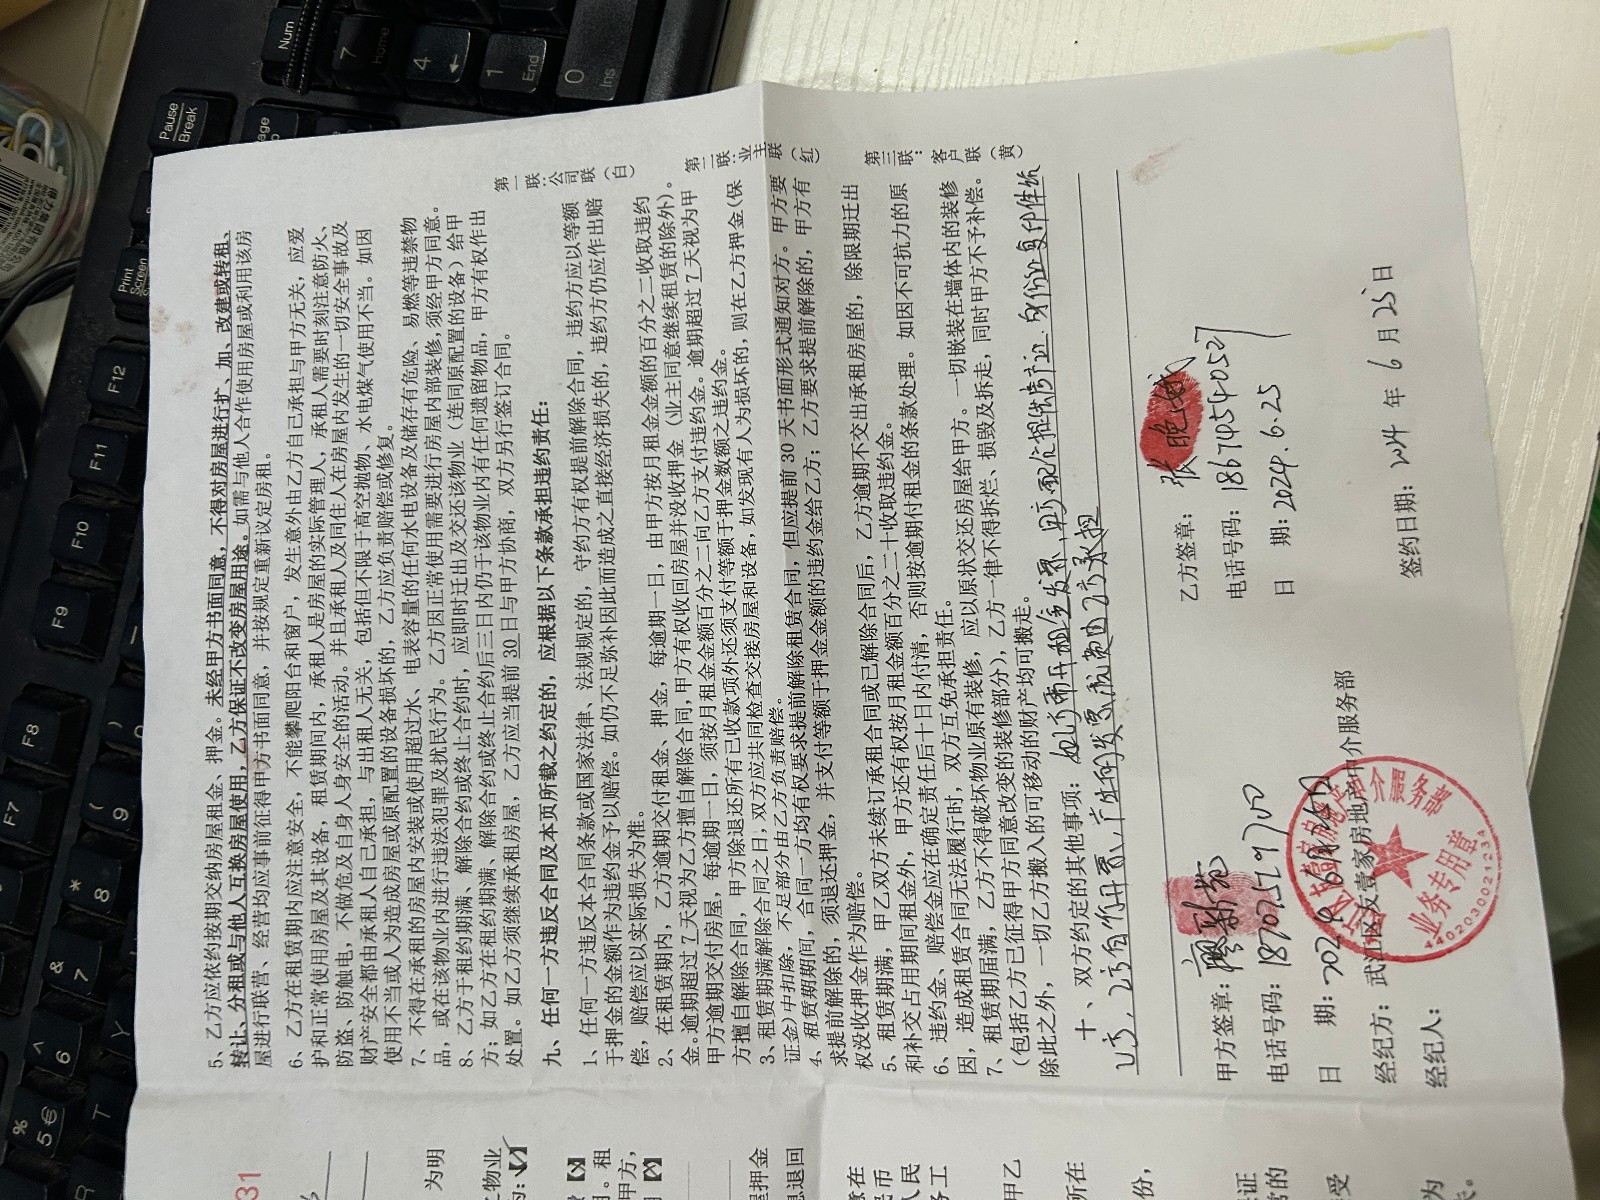 5、乙方应依约按期交纳房屋租金、押金。未经甲方书面同意，不得对房屋进行扩、加、改建或转租、
转让、分租或与他人互换房屋使用，乙方保证不改变房屋用途。如需与他人合作使用房屋或利用该房
屋进行联营、经营均应事前征得甲方书面同意，并按规定重新议定房租。
6、乙方在租赁期内应注意安全，不能攀爬阳台和窗户，发生意外由乙方自己承担与甲方无关，应爱
护和正常使用房屋及其设备，租赁期间内，承租人是房屋的实际管理人，承租人需要时刻注意防火、
防盗、防触电，不做危及自身人身安全的活动。并且承租人及同住人在房屋内发生的一切安全事故及
财产安全都由承租人自己承担，与出租人无关，包括但不限于高空抛物、水电煤气使用不当。如因
使用不当或人为造成房屋或原配置的设备损坏的，乙方应负责赔偿或修复。
7、不得在承租的房屋内安装或使用超过水、电表容量的任何水电设备及储存有危险、易燃等违禁物
品，或在该物业内进行违法犯罪及扰民行为。乙方因正常使用需要进行房屋内部装修，须经甲方同意。
8、乙方于租约期满、解除合约或终止合约时，应即时迁出及交还该物业（连同原配置的设备）给甲
方；如乙方在租约期满、解除合约或终止合约后三日内仍于该物业内有任何遗留物品，甲方有权作出
处置。如乙方须继续承租房屋，乙方应当提前30日与甲方协商，双方另行签订合同。
九、任何一方违反合同及本页所载之约定的，应根据以下条款承担违约责任：
1、任何一方违反本合同条款或国家法律、法规规定的，守约方有权提前解除合同，违约方应以等额
于押金的金额作为违约金予以赔偿。如仍不足弥补因此而造成之直接经济损失的，违约方仍应作出赔
偿，赔偿应以实际损失为准。
2、在租赁期内，乙方逾期交付租金、押金，每逾期一日，由甲方按月租金金额的百分之二收取违约
金。逾期超过7天视为乙方擅自解除合同，甲方有权收回房屋并没收押金（业主同意继续租赁的除外）。
甲方逾期交付房屋，每逾期一日，须按月租金金额百分之二向乙方支付违约金。逾期超过7天视为甲
方擅自解除合同，甲方除退还所有已收款项外还须支付等额于押金数额之违约金。
3、租赁期满解除合同之日，双方应共同检查交接房屋和设备，如发现有人为损坏的，则在乙方押金（保
证金）中扣除，不足部分由乙方负责赔偿。
4、租赁期间，合同一方均有权要求提前解除租赁合同，但应提前30天书面形式通知对方。甲方要
求提前解除的，须退还押金，并支付等额于押金金额的违约金给乙方；乙方要求提前解除的，甲方有
权没收押金作为赔偿。
5、租赁期满，甲乙双方未续订承租合同或已解除合同后，乙方逾期不交出承租房屋的，除限期迁出
和补交占用期间租金外，甲方还有权按月租金额百分之二十收取违约金。
6、违约金、赔偿金应在确定责任后十日内付清，否则按逾期付租金的条款处理。如因不可抗力的原
因，造成租赁合同无法履行时，双方互免承担责任。
7、租赁期届满，乙方不得破坏物业原有装修，应以原状交还房屋给甲方。一切嵌装在墙体内的装修
（包括乙方已征得甲方同意改变的装修部分），乙方一律不得拆烂、损毁及拆走，同时甲方不予补偿。
除此之外，一切乙方搬入的可移动的财产均可搬走。
十、双方约定的其他事项：
第一联：公司联（白）
第二联：业主联（红）
第三联：客户联（黄）
甲方签章：
电话号码：18707519700
日 期：
经纪方：武江区友壹家房地产中介服务部
经纪人：
业务专用章
4402030021234
乙方签章：张晚娥
电话号码：18674540527
日 期：2024.6.25
签约日期：2024 年 6 月 25 日
31
为明
物业
甲方，
屋押金
息退回
意在
民币
人民
务工
甲乙
所在
份，
证
常的
受
为
Num
7
Home
4
1
End
0
Ins
Pause
Break
Print
Screen
F12
F11
F10
F9
F8
F7
(
9
*
8
&
7
^
6
%
5
€
Y
T
R